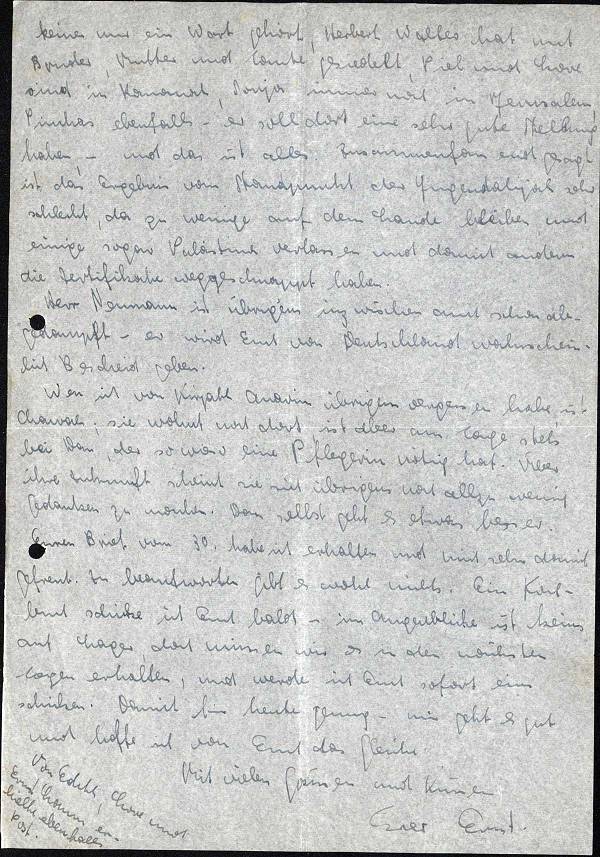 keiner nur ein Wort gehört, Herbert Walles hat mit
Bruder, Mutter und Tante gesiedelt, Piel und Chave
sind in Kanaroth, Sonja immer noch in Jerusalem,
Pinkas ebenfalls – er soll dort eine sehr gute Stellung
haben, – und das ist alles. Zusammenfassend gesagt
ist das Ergebnis vom Standpunkt der Jugendalijah sehr
schlecht, da zu wenige auf dem Lande bleiben und
einige sogar Palästina verlassen und damit andern
die Zertifikate weggeschnappt haben.
Herr Neumann ist übrigens inzwischen auch schon abge-
gedampft – er wird Euch von Deutschland wahrschein-
lich Bescheid geben.
Wen ich von Kirjath Anavim übrigens vergessen habe ist
Chawah; sie wohnt noch dort ist aber am Tage stets
bei Dan, der sowieso eine Pflegerin nötig hat. Über
ihre Zukunft scheint sie sich übrigens noch allzu wenig
Gedanken zu machen. Dan selbst geht es etwas besser.
Euren Brief vom 30. habe ich erhalten und mich sehr damit
gefreut. Zu beantworten gibt es wohl nichts. Ein
schicke ich Euch bald – im Augenblicke ist keins
auf Lager doch müssen wir es in den nächsten
Tagen erhalten, und werde ich Euch sofort eins
schicken. Damit für heute genug – mir geht es gut
und hoffe ich von Euch das Gleiche.
Mit vielen Grüssen und Küssen
Euer Ernst.
Von Edith, Chave und
Ernst
halte ebenfalls
Post.